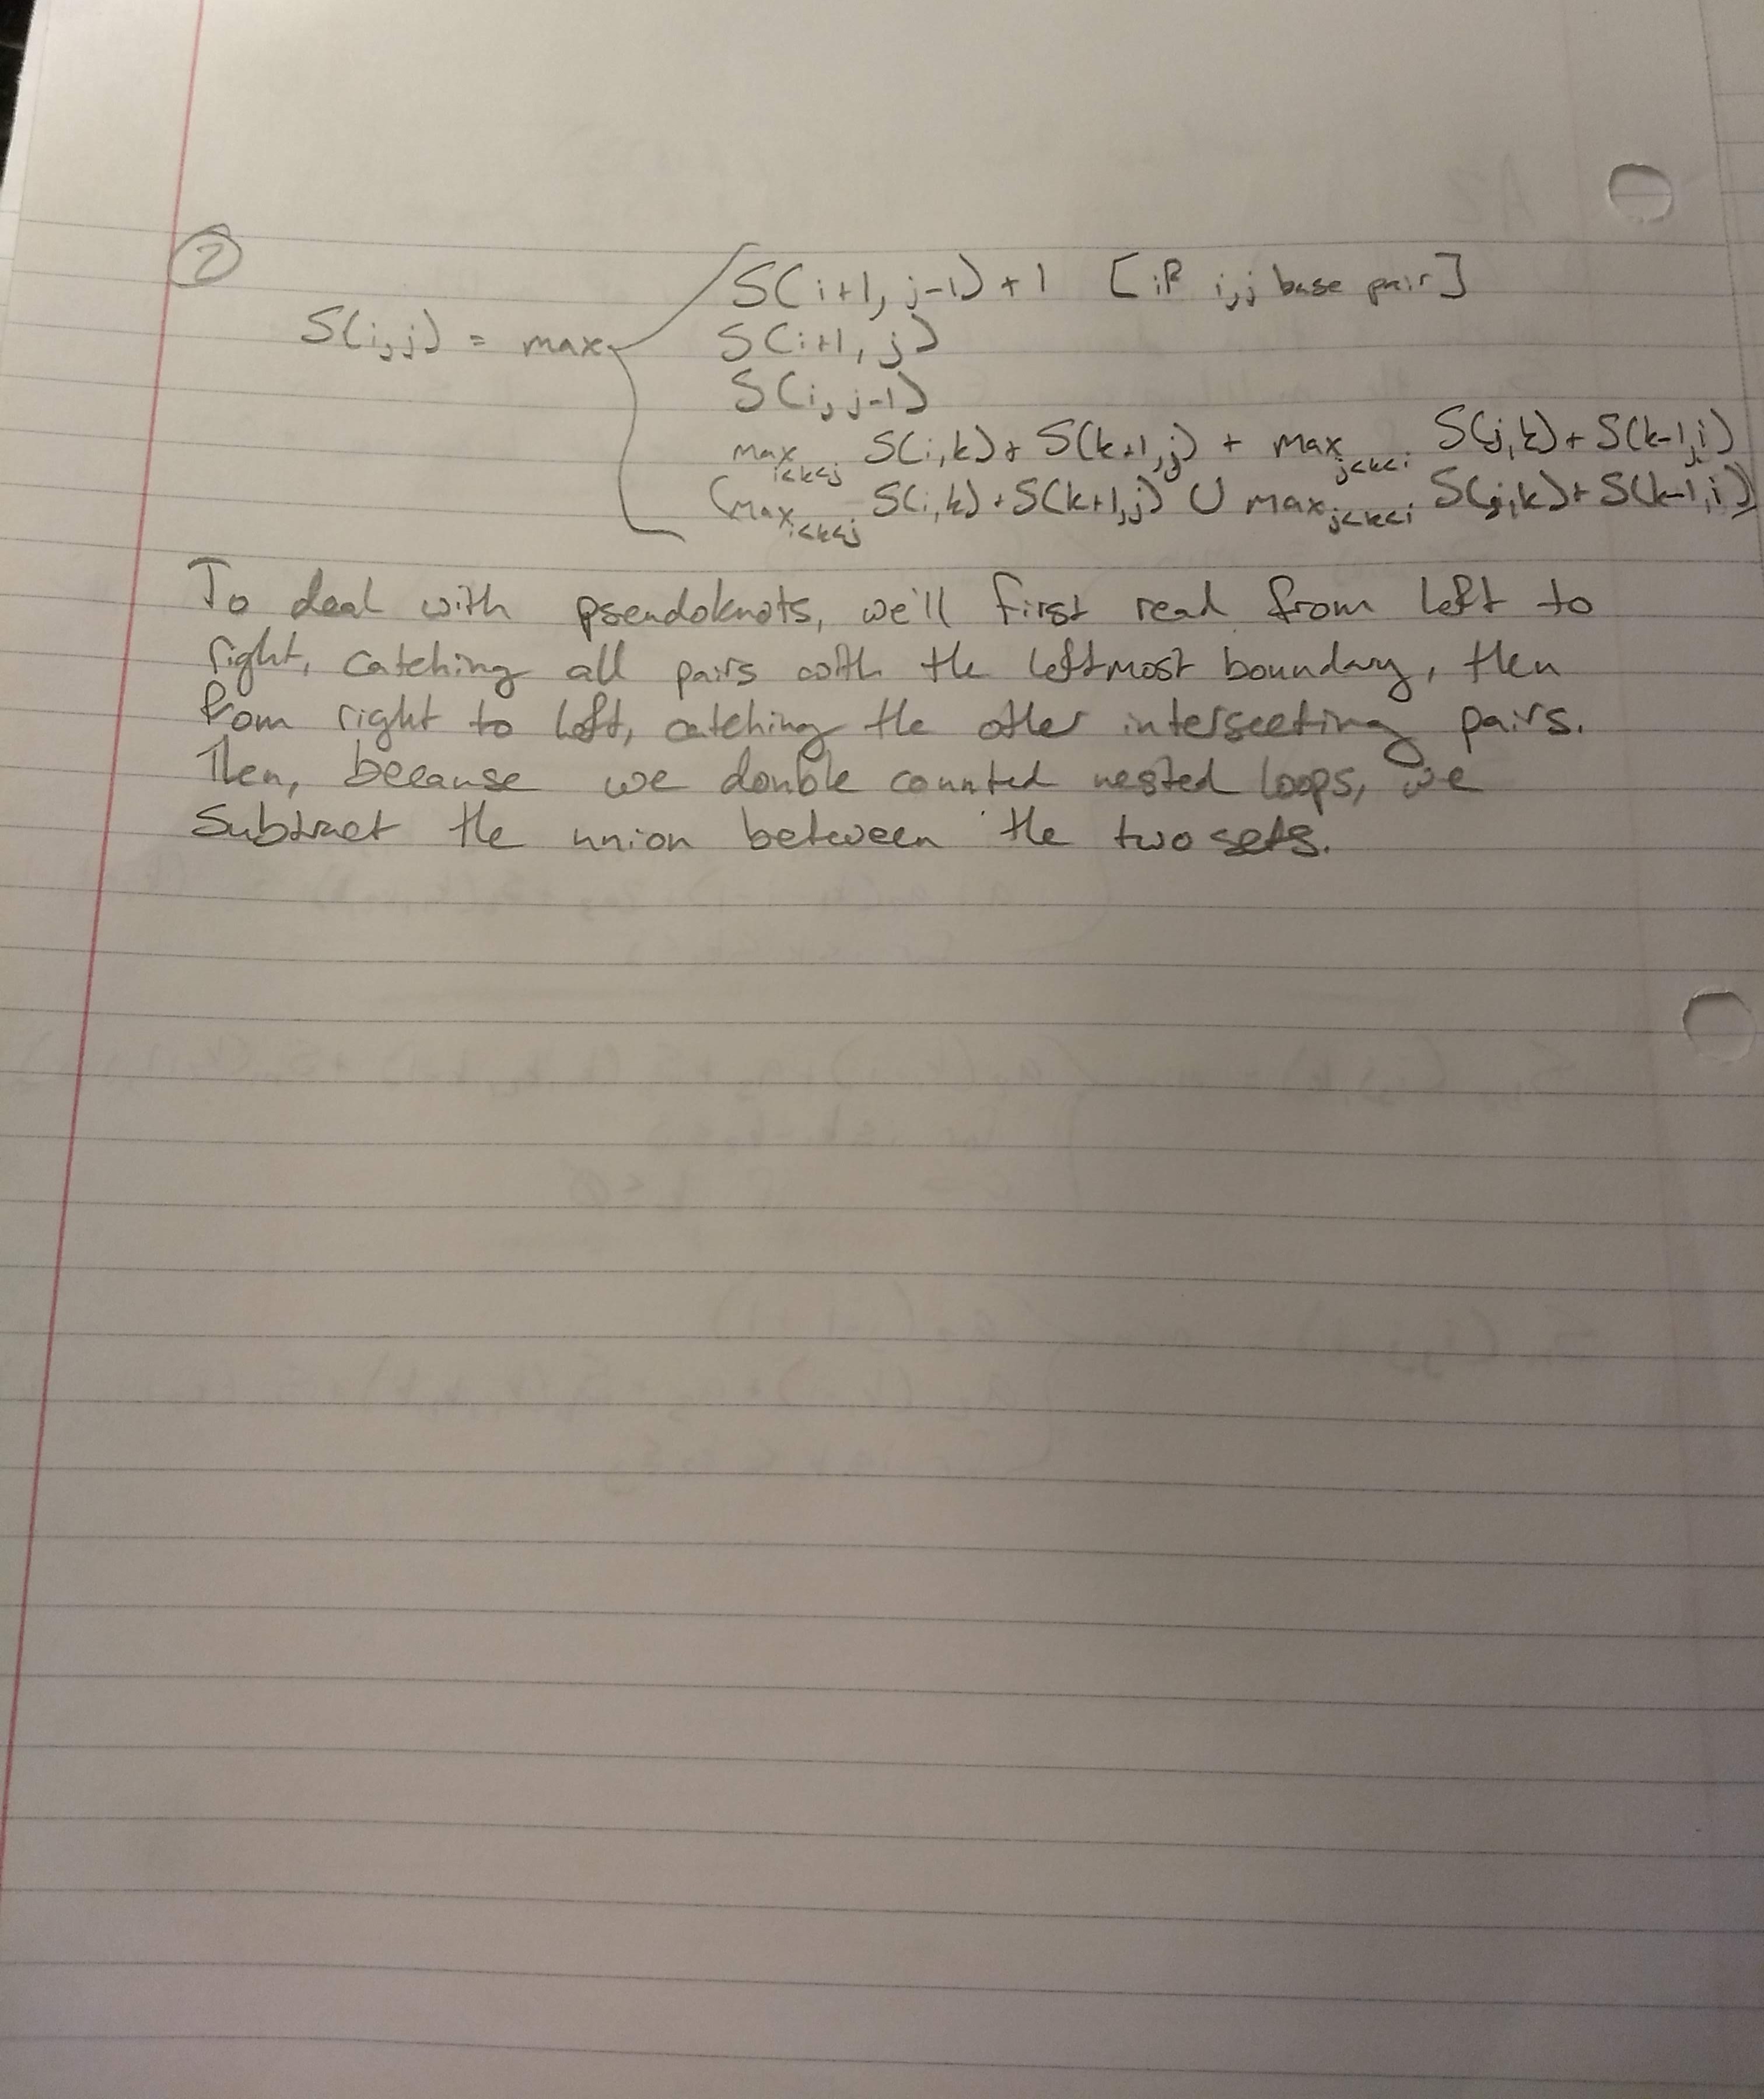 2
S(i+1, j-1) + 1 [if i,j base pair]
S(i,j) = max
S(i+1, j)
S(i, j-1)
max i<k<j S(i,k) + S(k+1,j) + max j<k<i S(j,k) + S(k-1,i)
(max i<k<j S(i,k) + S(k+1,j) U max j<k<i S(j,k) + S(k-1,i))
To deal with pseudoknots, we'll first read from left to
right, catching all pairs with the leftmost boundary, then
from right to left, catching the other intersecting pairs.
Then, because we double counted nested loops, we
subtract the union between the two sets.